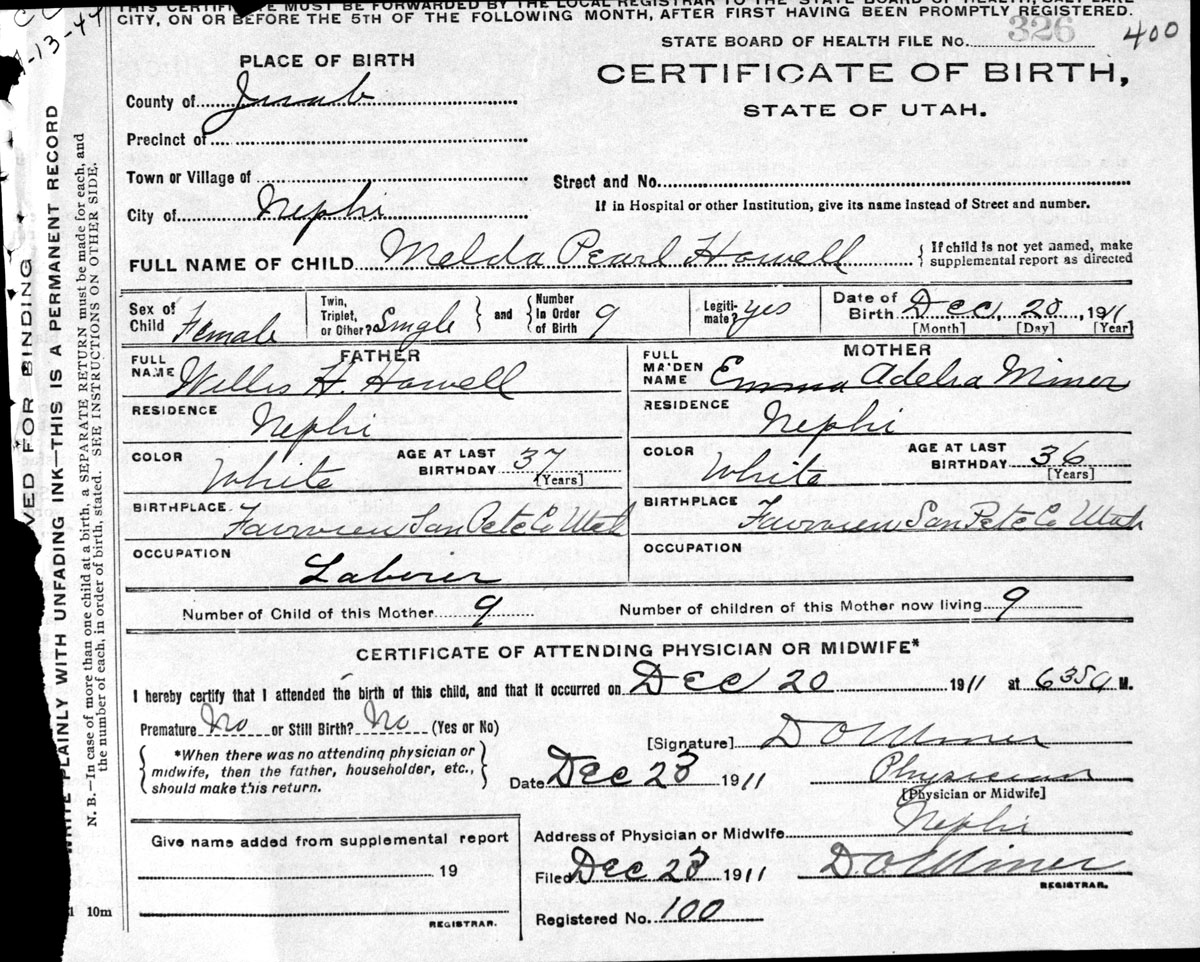 THIS CERTIFICATE MUST BE FORWARDED BY THE LOCAL REGISTRAR TO THE STATE BOARD OF HEALTH, SALT LAKE
CITY, ON OR BEFORE THE 5TH OF THE FOLLOWING MONTH, AFTER FIRST HAVING BEEN PROMPTLY REGISTERED.
-13-44
STATE BOARD OF HEALTH FILE No. 326 400
PLACE OF BIRTH
CERTIFICATE OF BIRTH,
STATE OF UTAH.
County of Juab
Precinct of
Town or Village of
Street and No.
City of Nephi
If in Hospital or other Institution, give its name instead of Street and number.
FULL NAME OF CHILD Melda Pearl Howell { If child is not yet named, make supplemental report as directed
Sex of Child Female
Twin, Triplet, or Other? Single } and { Number In Order of Birth 9
Legiti-mate? yes
Date of Birth Dec. 20, 1911
[Month] [Day] [Year]
FATHER
FULL NAME Willis H. Howell
RESIDENCE Nephi
COLOR White AGE AT LAST BIRTHDAY 37 [Years]
BIRTHPLACE Fairview San Pete Co Utah
OCCUPATION Laborer
MOTHER
FULL MAIDEN NAME Emma Adelia Miner
RESIDENCE Nephi
COLOR White AGE AT LAST BIRTHDAY 36 [Years]
BIRTHPLACE Fairview San Pete Co Utah
OCCUPATION
Number of Child of this Mother 9 Number of children of this Mother now living 9
CERTIFICATE OF ATTENDING PHYSICIAN OR MIDWIFE*
I hereby certify that I attended the birth of this child, and that it occurred on Dec 20 1911 at 6 35 a M.
Premature No or Still Birth? No (Yes or No)
{ *When there was no attending physician or midwife, then the father, householder, etc., should make this return. }
[Signature] D O Miner
Date Dec 23 1911 Physician
[Physician or Midwife]
Give name added from supplemental report
19
REGISTRAR.
Address of Physician or Midwife Nephi
Filed Dec 23 1911 D. O. Miner
REGISTRAR.
Registered No. 100
1 10m
VED FOR BINDING
WRITE PLAINLY WITH UNFADING INK—THIS IS A PERMANENT RECORD
N. B.—In case of more than one child at a birth, a SEPARATE RETURN must be made for each, and
the number of each, in order of birth, stated. SEE INSTRUCTIONS ON OTHER SIDE.